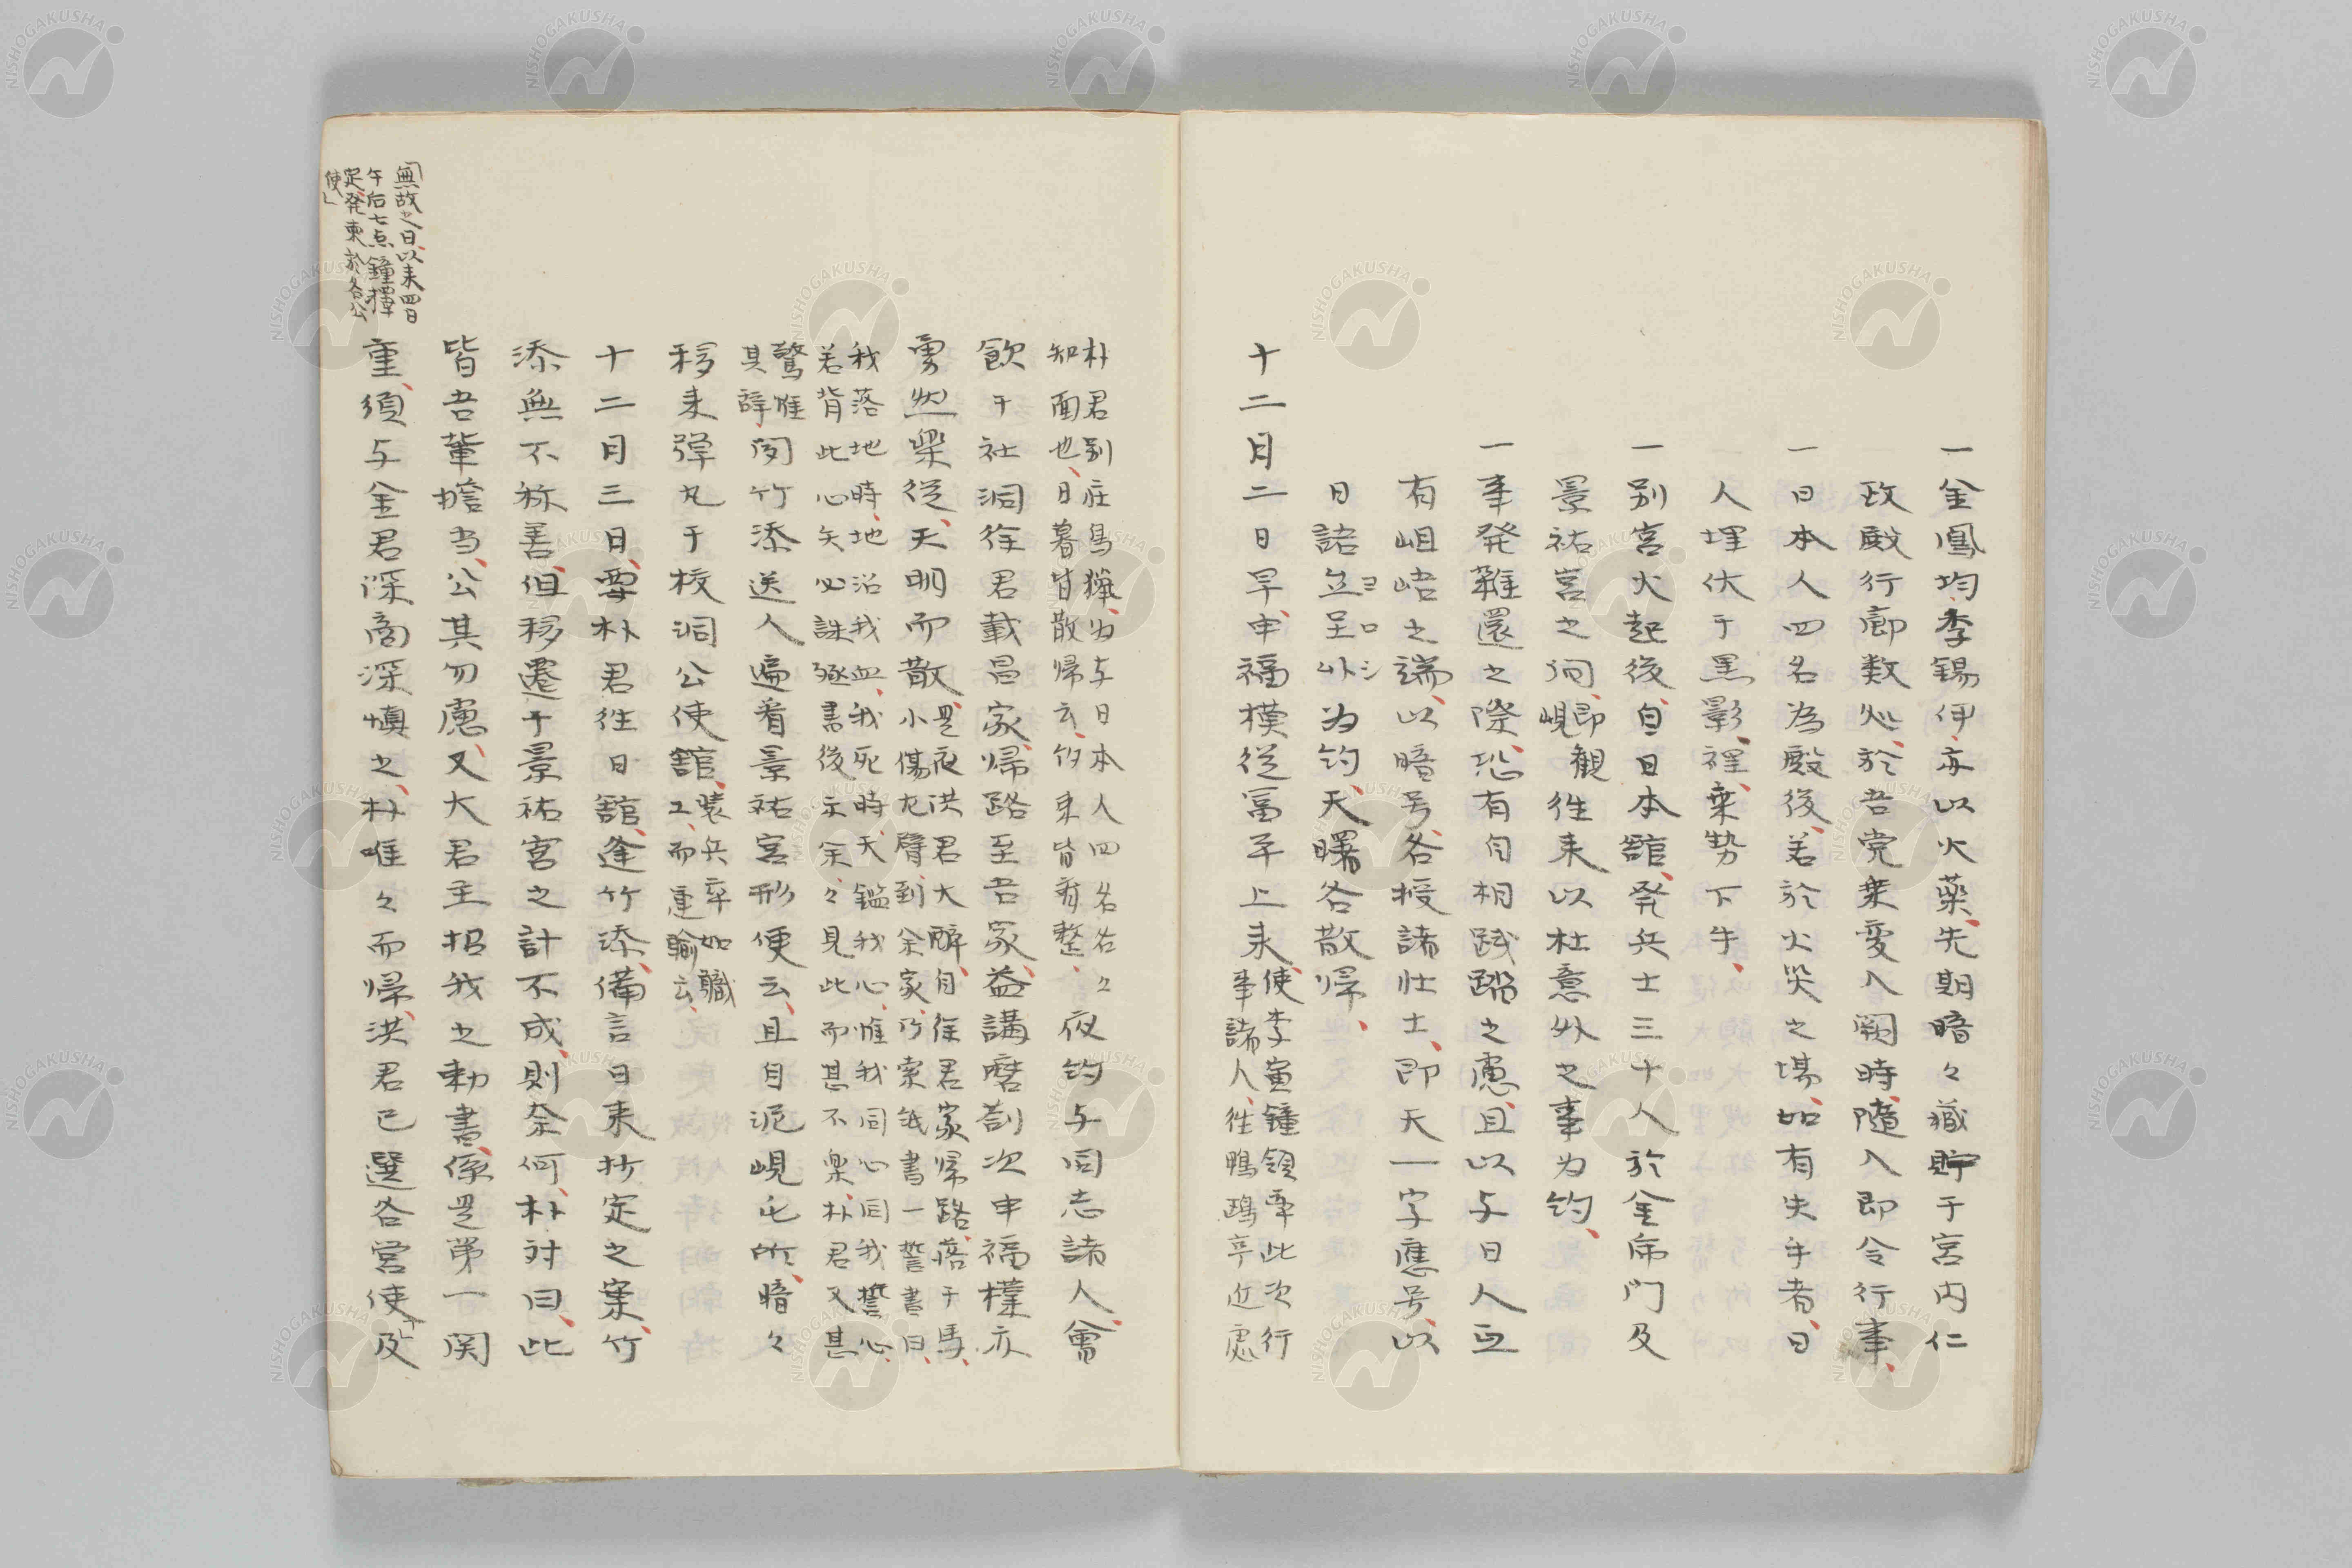 一金鳳均、李錫伊、亦以火藥、先期暗々藏貯于宮内仁
政殿行廊数処、於吾党乗変入闕時、隨入即令行事、
一日本人四名為殿後、若於火災之場、如有失手者、日
人埋伏于黒影裡、乗勢下手、
一別宮火起後、自日本舘、発兵士三十人於金席門及
景祐宮之间、即峴観往来以杜意外之事为约、
一事発雜還之際、恐有自相践踏之慮、且以与日人互
有岨峿之端、以暗号、各授諸壮士、即天一字應号、以
日語ヨロシ为约、天曙各散帰、
十二月二日早、申福模従冨平上来、使李寅鐘領率此次行
事諸人、往鴨鷗亭近處
朴君别庄鳥獵、为与日本人四名名々
知面也、日暮皆散帰云、约束皆有整、夜约与同志諸人、會
飲于社洞徐君載昌家、帰路至吾家、益講磨劄次申福模亦
勇然樂従、天明而散、是夜洪君大醉、自徐君家帰路、落于馬、
小傷尤臂、到余家、乃索紙書一誓書曰、
我落地時、地沿我血、我死時、天鑑我心、惟我同心同我誓心、
若背此心矢必誅殛、書後示余、々見此而甚不楽、朴君又甚
驚惟
其辞、閔竹添送人遍看景祐宮形便云、且自泥峴屯所、暗々
移来弾丸于校洞公使舘、裝兵卒如職
工、而運輸云、
十二月三日、要朴君往日舘、逢竹添、備言日来抄定之案、竹
添無不称善、但移遷于景祐宮之計不成、則奈何、朴対曰、此
皆吾輩擔当、公其勿慮、又大君主招我之勅書、係是第一関
重、須与金君深商深慎之、朴唯々而帰、洪君已選各営使及
「無故之日、以来四日
午后七点鐘擇
定、発柬於各公
使」